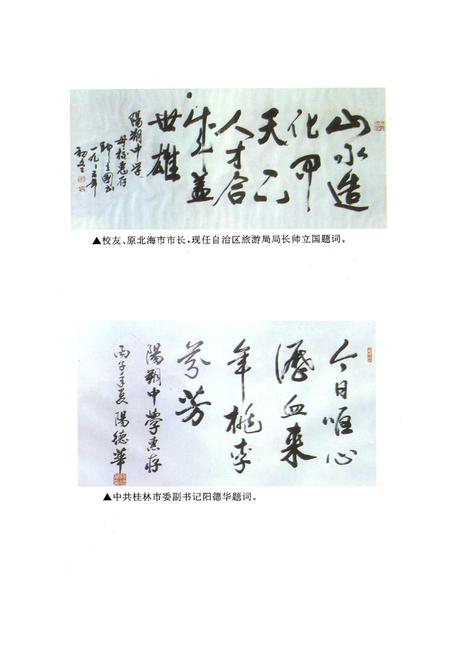 山水造
化甲
天下
人才合
盖
世雄
陽朔中学
母校惠存
帅立国书
一九九五年
▲校友、原北海市市长,现任自治区旅游局局长帅立国题词。
今日心
瀝血来
年桃李
芬芳
陽朔中學惠存
丙子年夏 陽德華
▲中共桂林市委副书记阳德华题词。